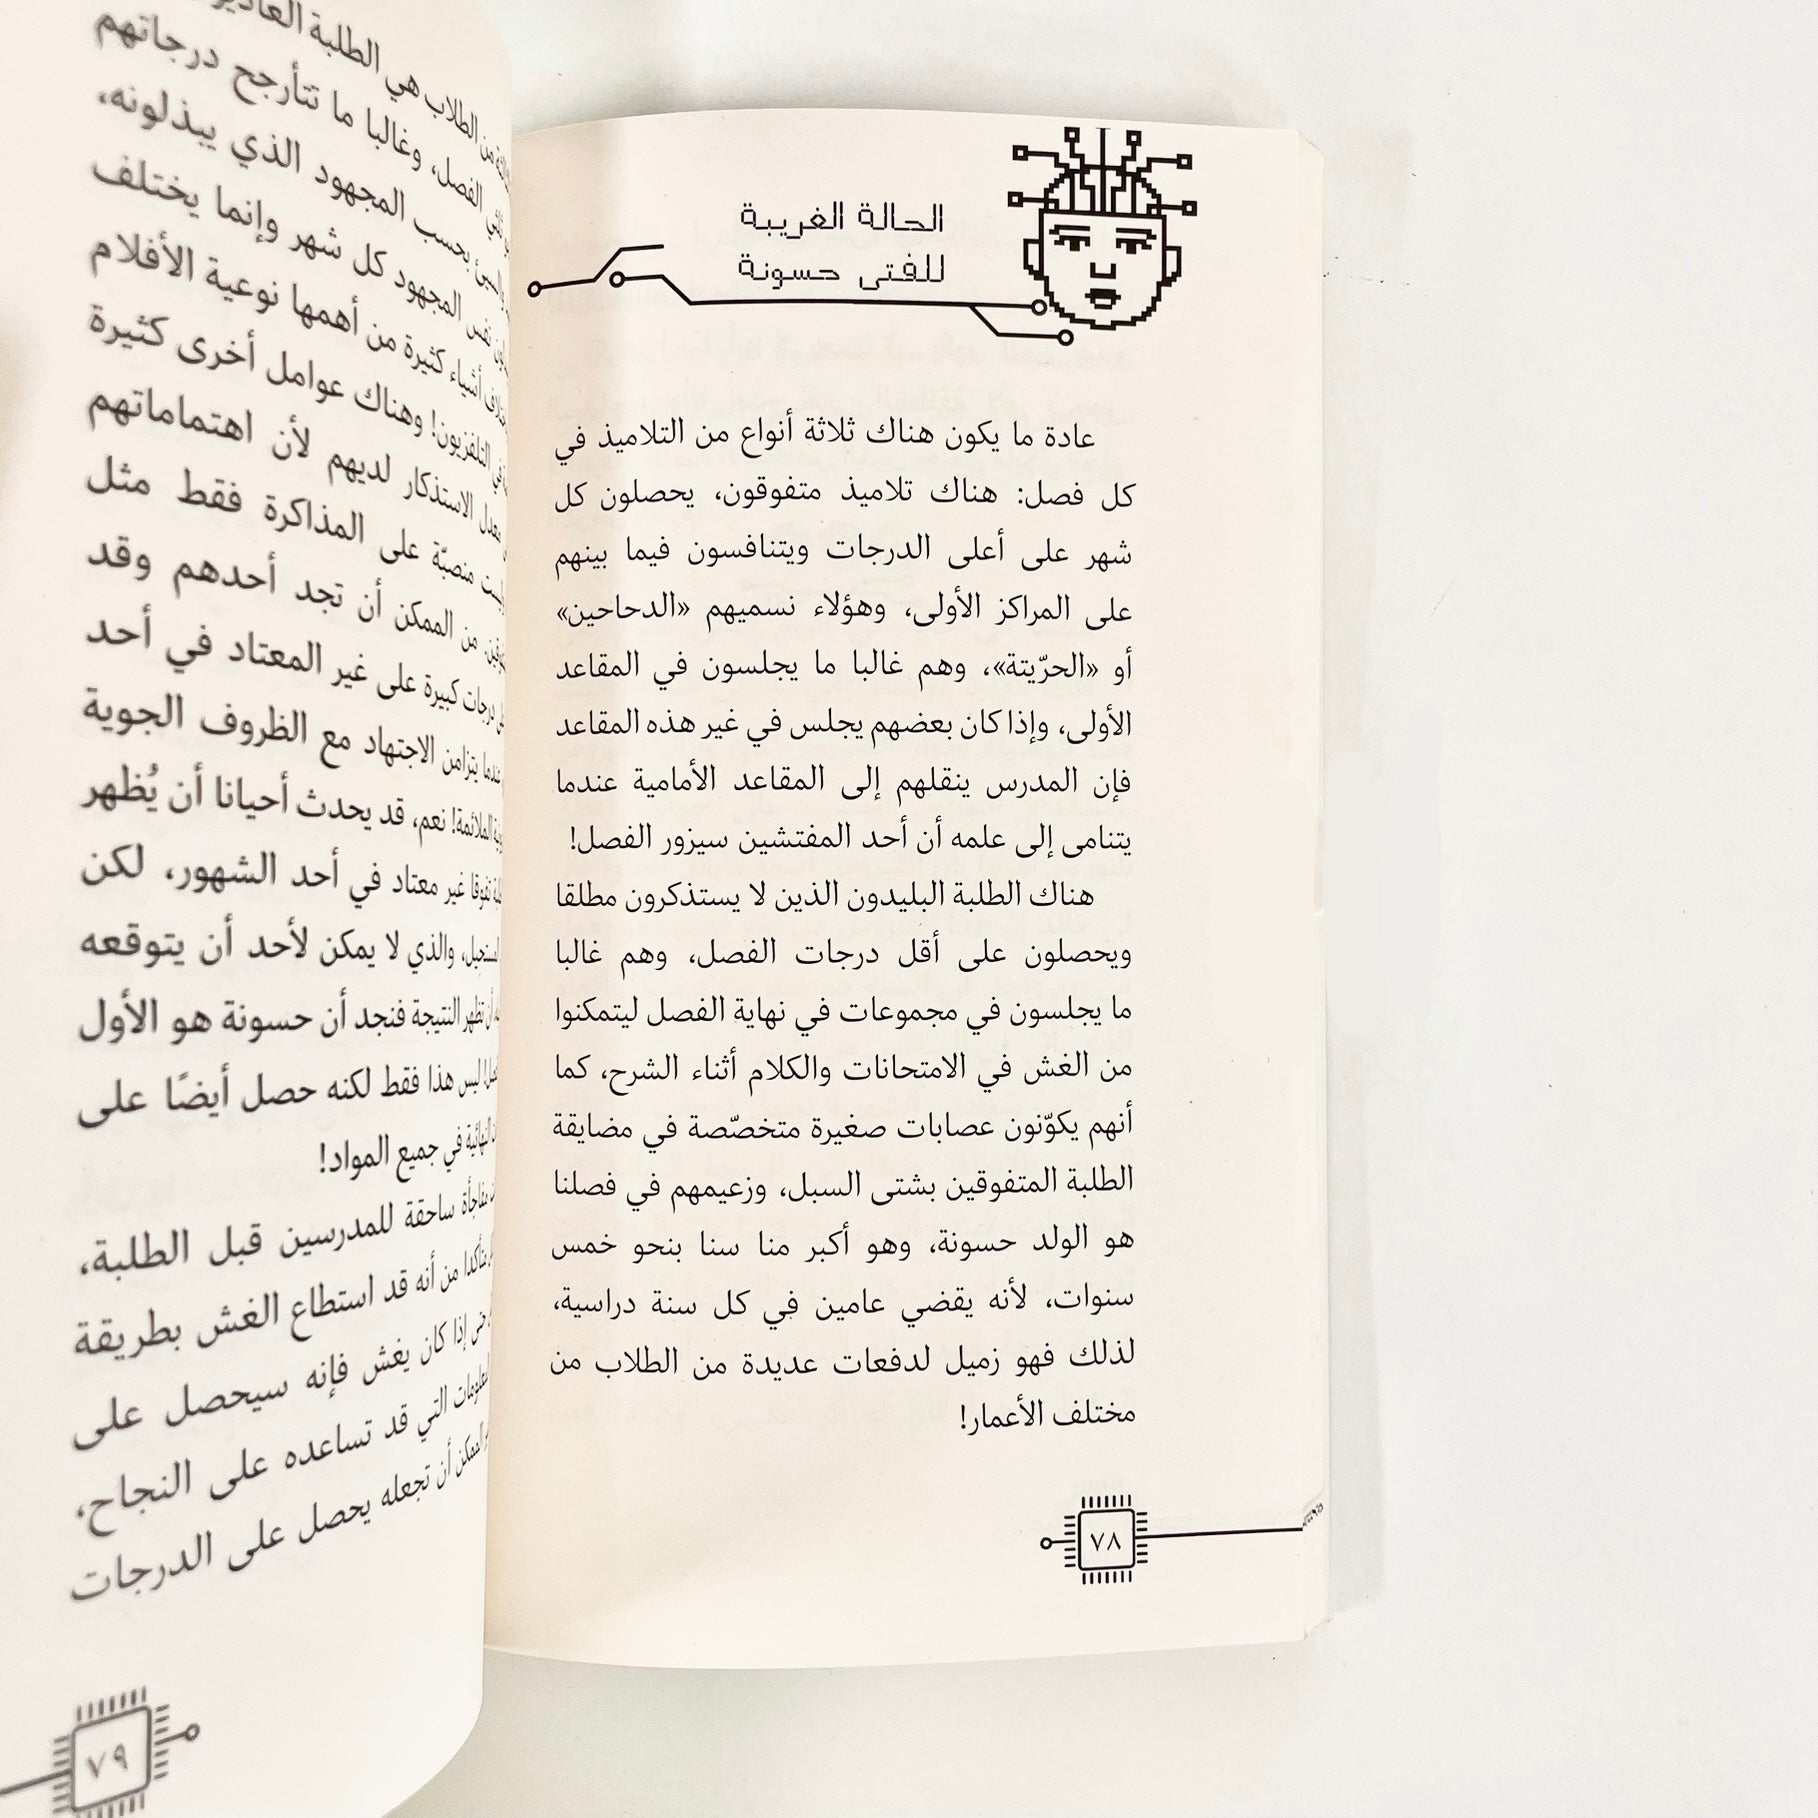 الحالة الغريبة
للفتى حسونة
عادة ما يكون هناك ثلاثة أنواع من التلاميذ في
كل فصل: هناك تلاميذ متفوقون، يحصلون كل
شهر على أعلى الدرجات ويتنافسون فيما بينهم
على المراكز الأولى، وهؤلاء نسميهم «الدحاحين»
أو «الحرّيتة»، وهم غالبا ما يجلسون في المقاعد
الأولى، وإذا كان بعضهم يجلس في غير هذه المقاعد
فإن المدرس ينقلهم إلى المقاعد الأمامية عندما
يتنامى إلى علمه أن أحد المفتشين سيزور الفصل!
هناك الطلبة البليدون الذين لا يستذكرون مطلقا
ويحصلون على أقل درجات الفصل، وهم غالبا
ما يجلسون في مجموعات في نهاية الفصل ليتمكنوا
من الغش في الامتحانات والكلام أثناء الشرح، كما
أنهم يكوّنون عصابات صغيرة متخصّصة في مضايقة
الطلبة المتفوقين بشتى السبل، وزعيمهم في فصلنا
هو الولد حسونة، وهو أكبر منا سنا بنحو خمس
سنوات، لأنه يقضي عامين في كل سنة دراسية،
لذلك فهو زميل لدفعات عديدة من الطلاب من
مختلف الأعمار!
٧٨
من الطلاب هي الطلبة
الفصل، وغالبا ما تتأرجح درجاتهم
بحسب المجهود الذي يبذلونه،
نفس المجهود كل شهر وإنما يختلف
أشياء كثيرة من أهمها نوعية الأفلام
في التلفزيون! وهناك عوامل أخرى كثيرة
معدل الاستذكار لديهم لأن اهتماماتهم
ليست منصبّة على المذاكرة فقط مثل
من الممكن أن تجد أحدهم وقد
درجات كبيرة على غير المعتاد في أحد
عندما يتزامن الاجتهاد مع الظروف الجوية
الملائمة! نعم، قد يحدث أحيانا أن يُظهر
تفوقا غير معتاد في أحد الشهور، لكن
المستحيل، والذي لا يمكن لأحد أن يتوقعه
أن تظهر النتيجة فنجد أن حسونة هو الأول
ليس هذا فقط لكنه حصل أيضًا على
النهائية في جميع المواد!
مفاجأة ساحقة للمدرسين قبل الطلبة،
من أنه قد استطاع الغش بطريقة
حتى إذا كان يغش فإنه سيحصل على
المعلومات التي قد تساعده على النجاح،
الممكن أن تجعله يحصل على الدرجات
٧٩